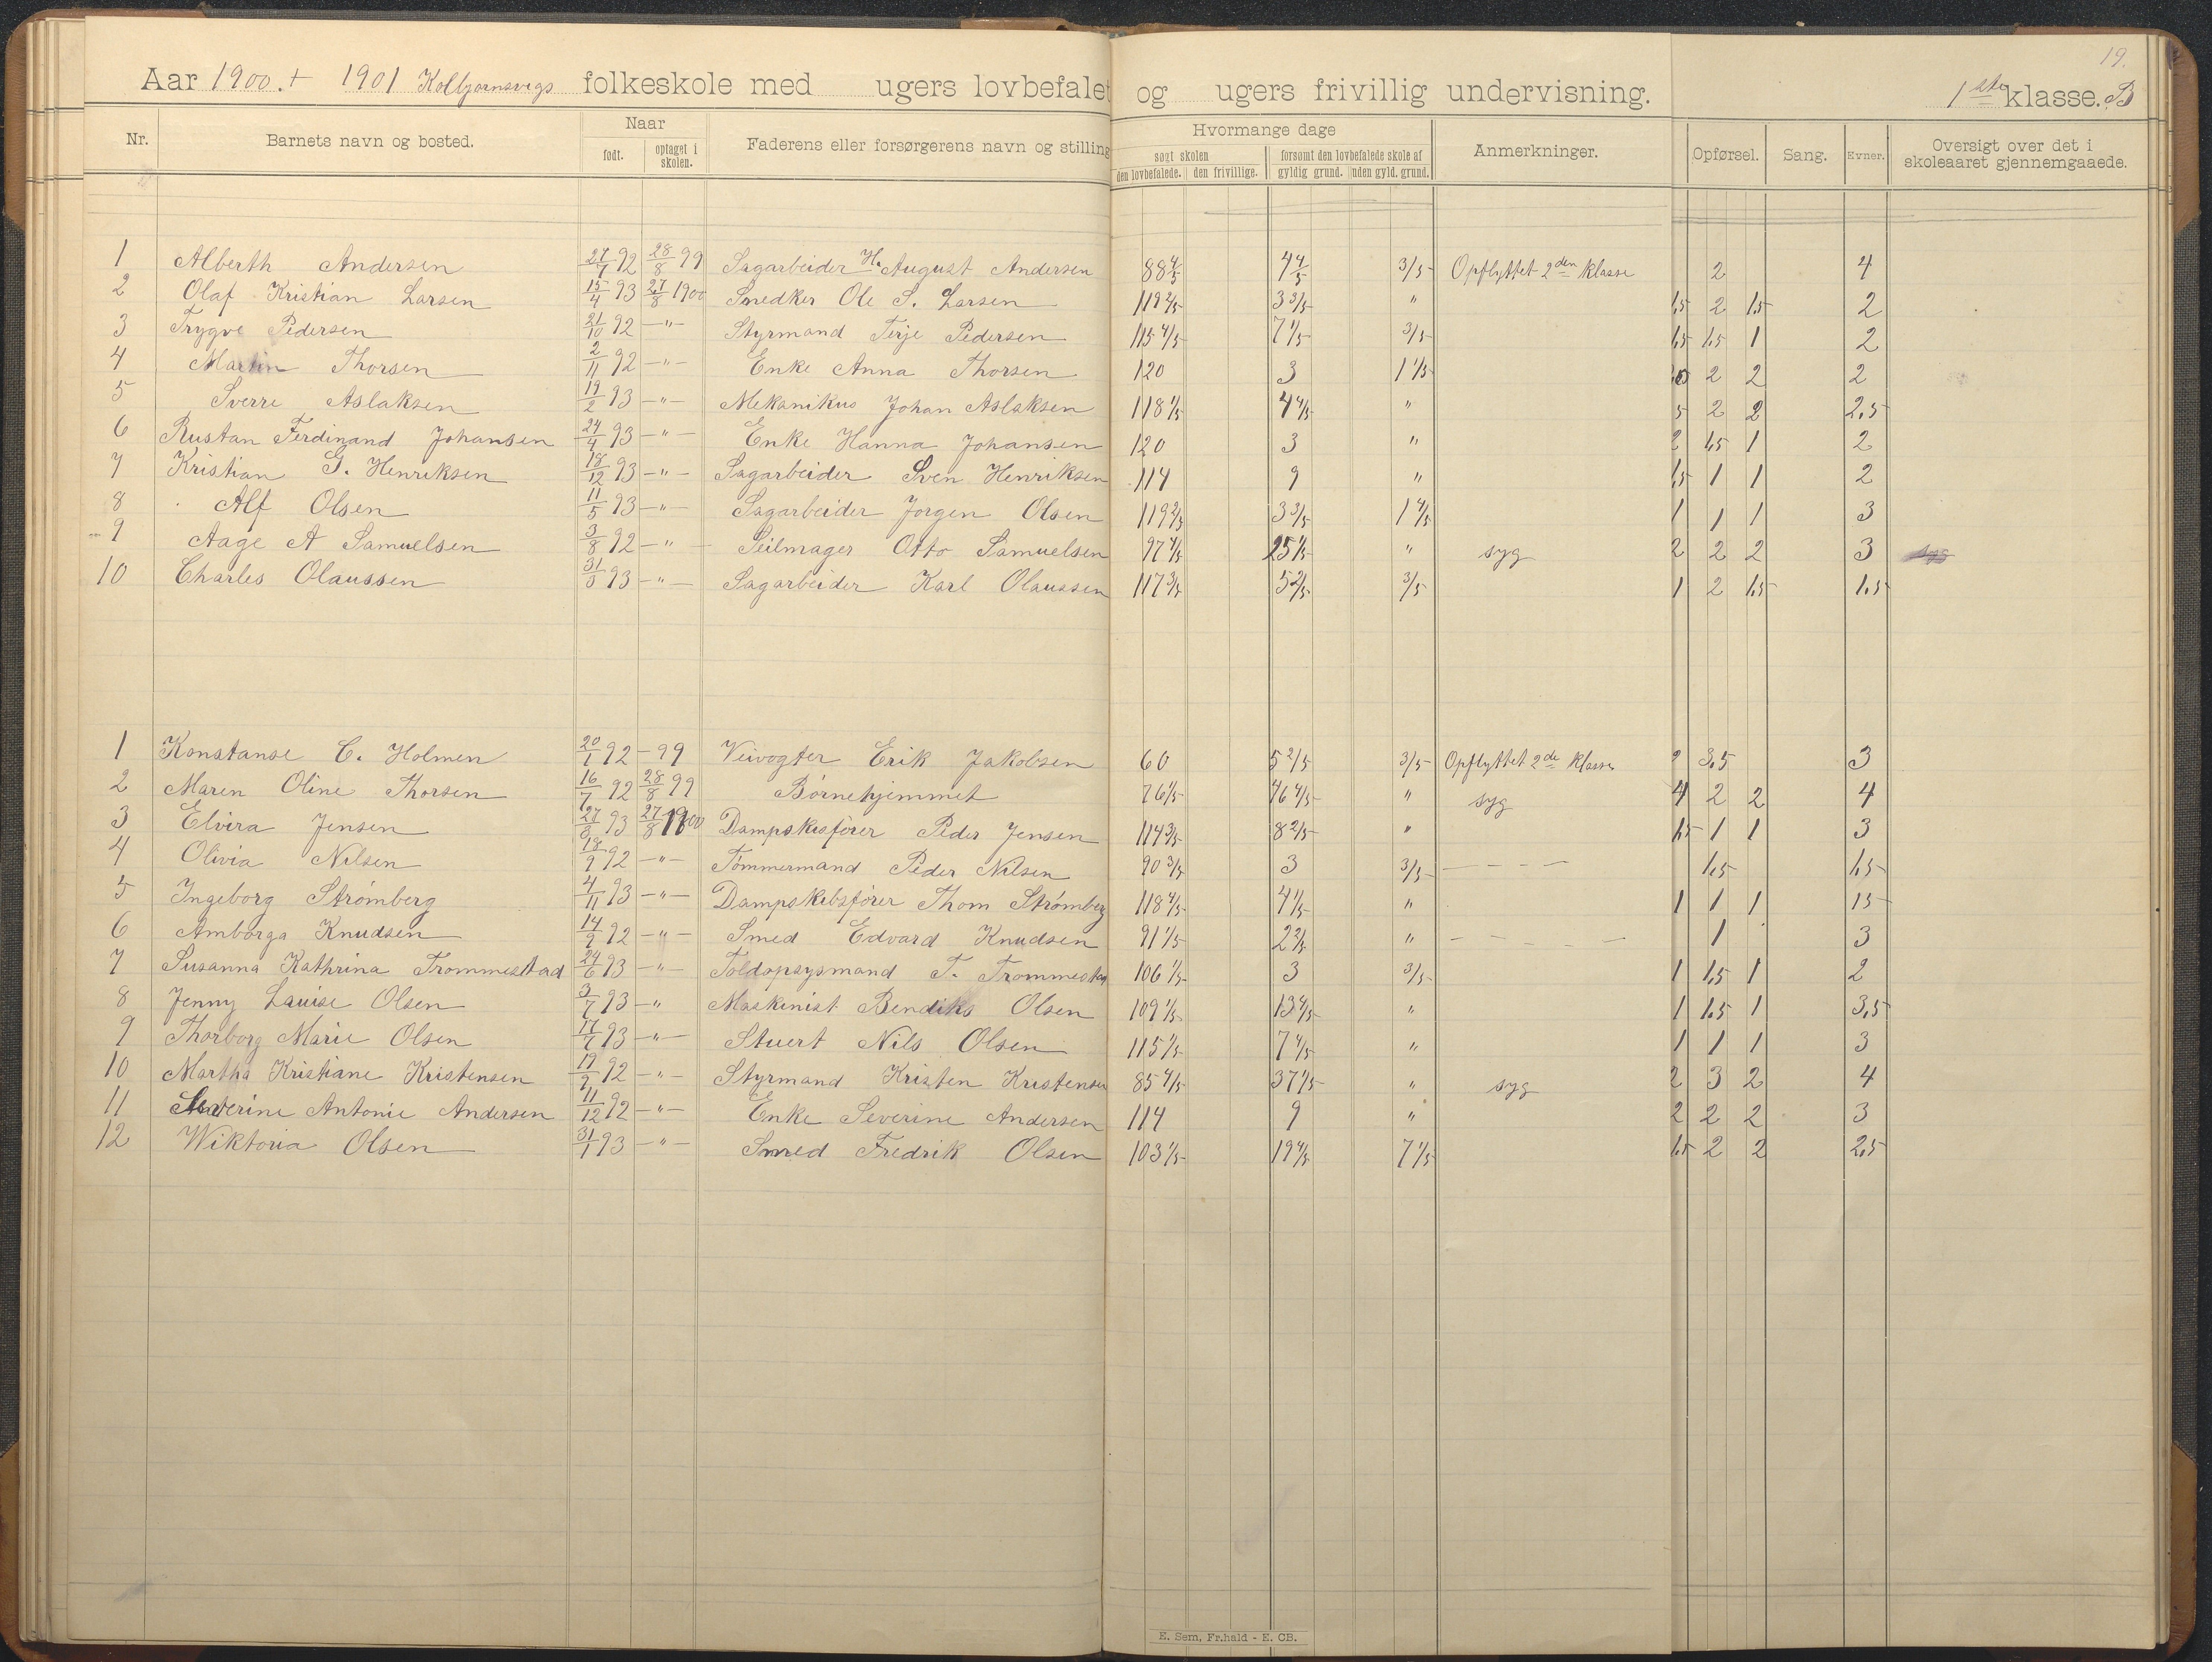 19.
Aar 1900. + 1901 Kolbjørnsvigs folkeskole med ugers lovbefalet og ugers frivillig undervisning. 1ste klasse. B
Nr. Barnets navn og bosted. Naar født. optaget i skolen. Faderens eller forsørgerens navn og stilling Hvormange dage søgt skolen den lovbefalede. den frivillige. forsømt den lovbefalede skole af gyldig grund. uden gyld. grund. Anmerkninger. Opførsel. Sang. Evner. Oversigt over det i skoleaaret gjennemgaaede.
1 Alberth Andersen 27/7 92 28/8 99 Sagarbeider H. August Andersen 88 4/5 4 4/5 3/5 Opflyttet 2den klasse 2 4
2 Olaf Kristian Larsen 15/4 93 27/8 1900 Snedker Ole S. Larsen 119 2/5 3 3/5 " 1,5 2 1,5 2
3 Trygve Pedersen 21/10 92 —"— Styrmand Terje Pedersen 115 4/5 7 1/5 3/5 1,5 1,5 1 2
4 Martin Thorsen 2/11 92 —"— Enke Anna Thorsen 120 3 1 1/5 2 2 2
5 Sverre Aslaksen 19/2 93 —"— Mekanikus Johan Aslaksen 118 1/5 4 4/5 " 5 2 2 2,5
6 Rustan Ferdinand Johansen 24/4 93 —"— Enke Hanna Johansen 120 3 " 2 1,5 1 2
7 Kristian G. Henriksen 18/12 93 —"— Sagarbeider Sven Henriksen 114 9 " 1,5 1 1 2
8 Alf Olsen 11/5 93 —"— Sagarbeider Jørgen Olsen 119 2/5 3 3/5 1 4/5 1 1 1 3
9 Aage A Samuelsen 3/8 92 —"— Seilmager Otto Samuelsen 97 4/5 25 1/5 " syg 2 2 2 3 syg
10 Charles Olaussen 31/3 93 —"— Sagarbeider Karl Olaussen 117 3/5 5 2/5 3/5 1 2 1,5 1,5
1 Konstanse C. Holmen 20/1 92 — 99 Veivogter Erik Jakobsen 60 5 2/5 3/5 Opflyttet 2de klasse 2 3,5 3
2 Maren Oline Thorsen 16/7 92 28/8 99 Børnehjemmet 76 1/5 46 4/5 " syg 4 2 2 4
3 Elvira Jensen 27/8 93 27/8 1900 Dampskisfører Peder Jensen 114 3/5 8 2/5 " 1,5 1 1 3
4 Olivia Nilsen 18/9 92 —"— Tømmermand Peder Nilsen 90 3/5 3 3/5 — — — — 1,5 1,5
5 Ingeborg Strømberg 4/11 93 —"— Dampskibsfører Thom Strømberg 118 4/5 4 1/5 " 1 1 1 15
6 Amborga Knudsen 14/9 92 —"— Smed Edvard Knudsen 91 1/5 2 2/5 " — — — — 1 3
7 Susanna Kathrina Trommestad 24/6 93 —"— Toldopsysmand T. Trommestad 106 1/5 3 3/5 1 1,5 1 2
8 Jenny Lauise Olsen 3/7 93 —" Maskinist Bendiks Olsen 109 1/5 13 4/5 " 1 1,5 1 3,5
9 Thorborg Marie Olsen 17/7 93 —"— Stuert Nils Olsen 115 1/5 7 4/5 " 1 1 1 3
10 Martha Kristiane Kristensen 19/9 92 —"— Styrmand Kristen Kristensen 85 4/5 37 1/5 " syg 2 3 2 4
11 Severine Antonie Andersen 11/12 92 —"— Enke Severine Andersen 114 9 " 2 2 2 3
12 Wiktoria Olsen 31/1 93 —"— Smed Fredrik Olsen 103 1/5 19 4/5 7 1/5 1,5 2 2 2,5
E. Sem, Fr.hald - E. CB.